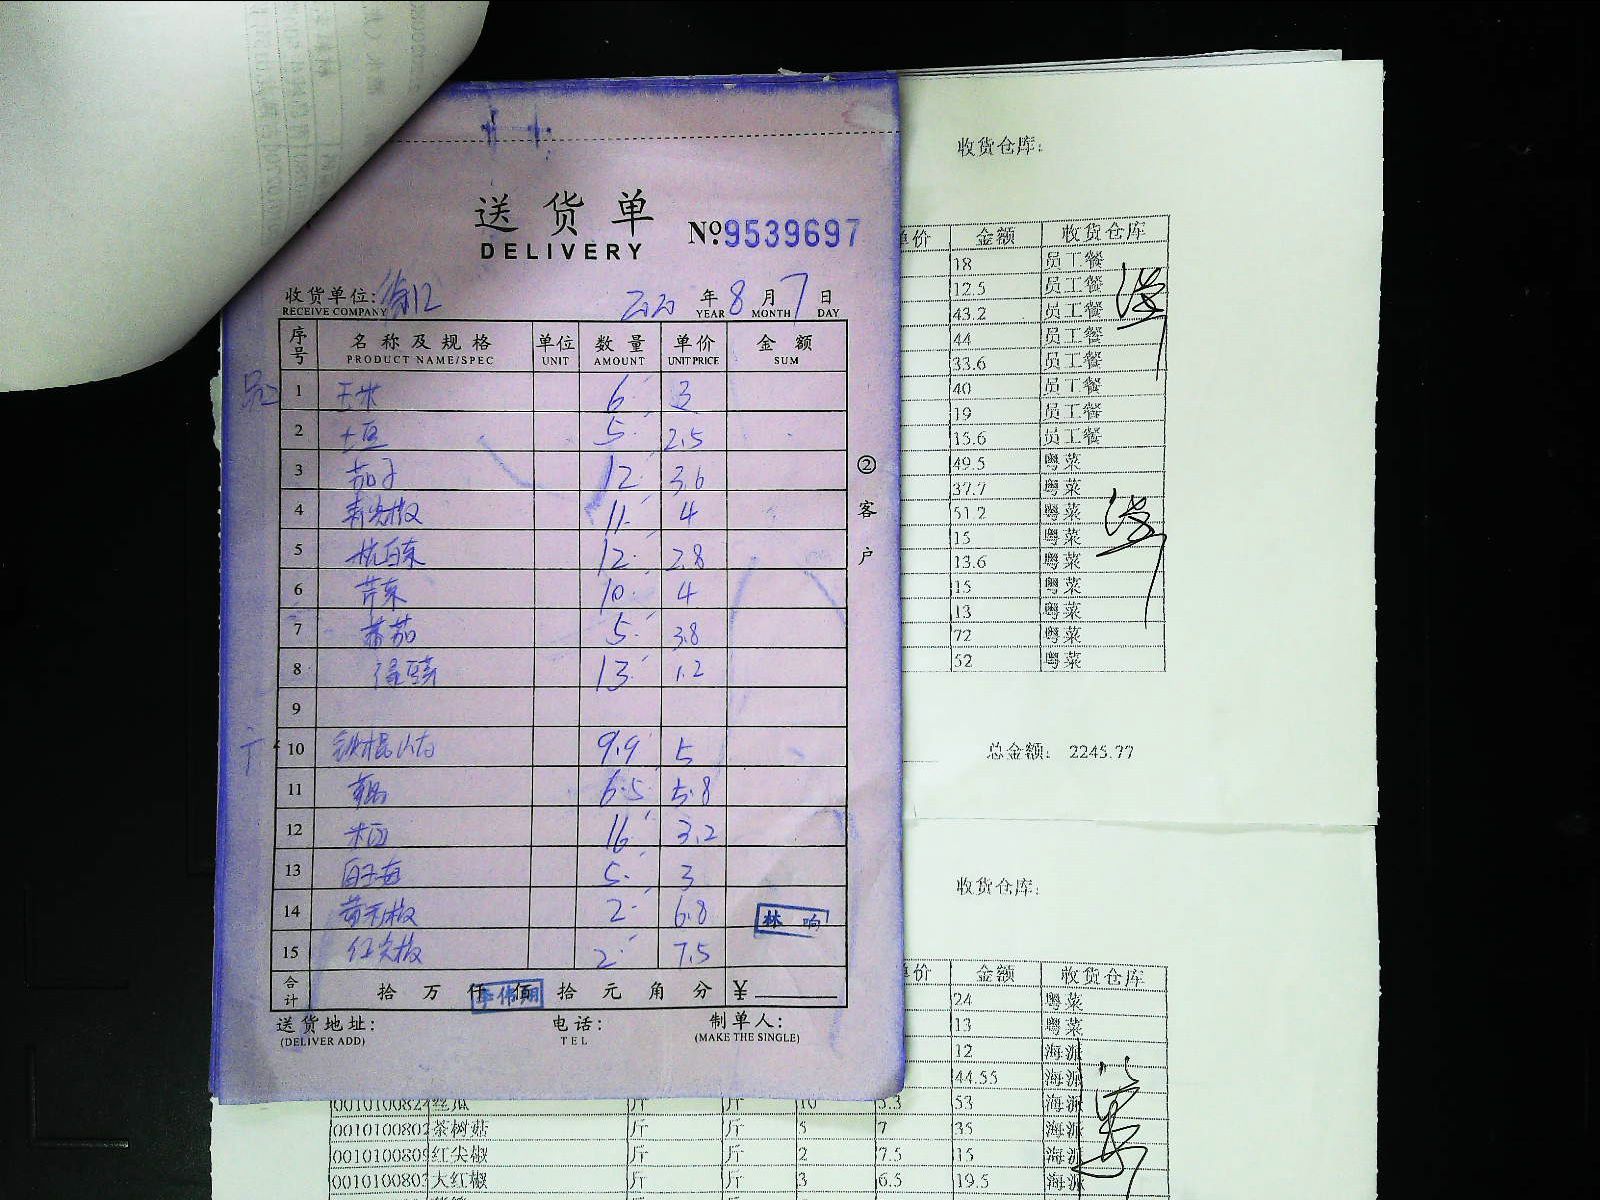 送货单
DELIVERY
№9539697
收货单位:
RECEIVE COMPANY
2020 年 8 月 7 日
YEAR MONTH DAY
序号 名称及规格 单位 数量 单价 金额
PRODUCT NAME/SPEC UNIT AMOUNT UNIT PRICE SUM
1 玉米 6 3
2 土豆 5 2.5
3 茄子 12 3.6
4 青尖椒 11 4
5 杭白菜 12 2.8
6 芹菜 10 4
7 番茄 5 3.8
8 13 1.2
9
10 铁棍山药 9.9 5
11 6.5 5.8
12 16 3.2
13 5 3
14 黄彩椒 2 6.8
15 红尖椒 2 7.5
林响
合计 拾 万 仟 佰 拾 元 角 分 ¥
李伟明
送货地址: 电话: 制单人:
(DELIVER ADD) TEL (MAKE THE SINGLE)
② 客户
收货仓库:
单价 金额 收货仓库
18 员工餐
12.5 员工餐
43.2 员工餐
44 员工餐
33.6 员工餐
40 员工餐
19 员工餐
15.6 员工餐
49.5 粤菜
37.7 粤菜
51.2 粤菜
15 粤菜
13.6 粤菜
15 粤菜
13 粤菜
72 粤菜
52 粤菜
总金额: 2245.77
收货仓库:
单价 金额 收货仓库
24 粤菜
13 粤菜
12 海派
44.55 海派
丝瓜 斤 斤 10 5.3 53 海派
茶树菇 斤 斤 5 7 35 海派
红尖椒 斤 斤 2 7.5 15 海派
大红椒 斤 斤 3 6.5 19.5 海派